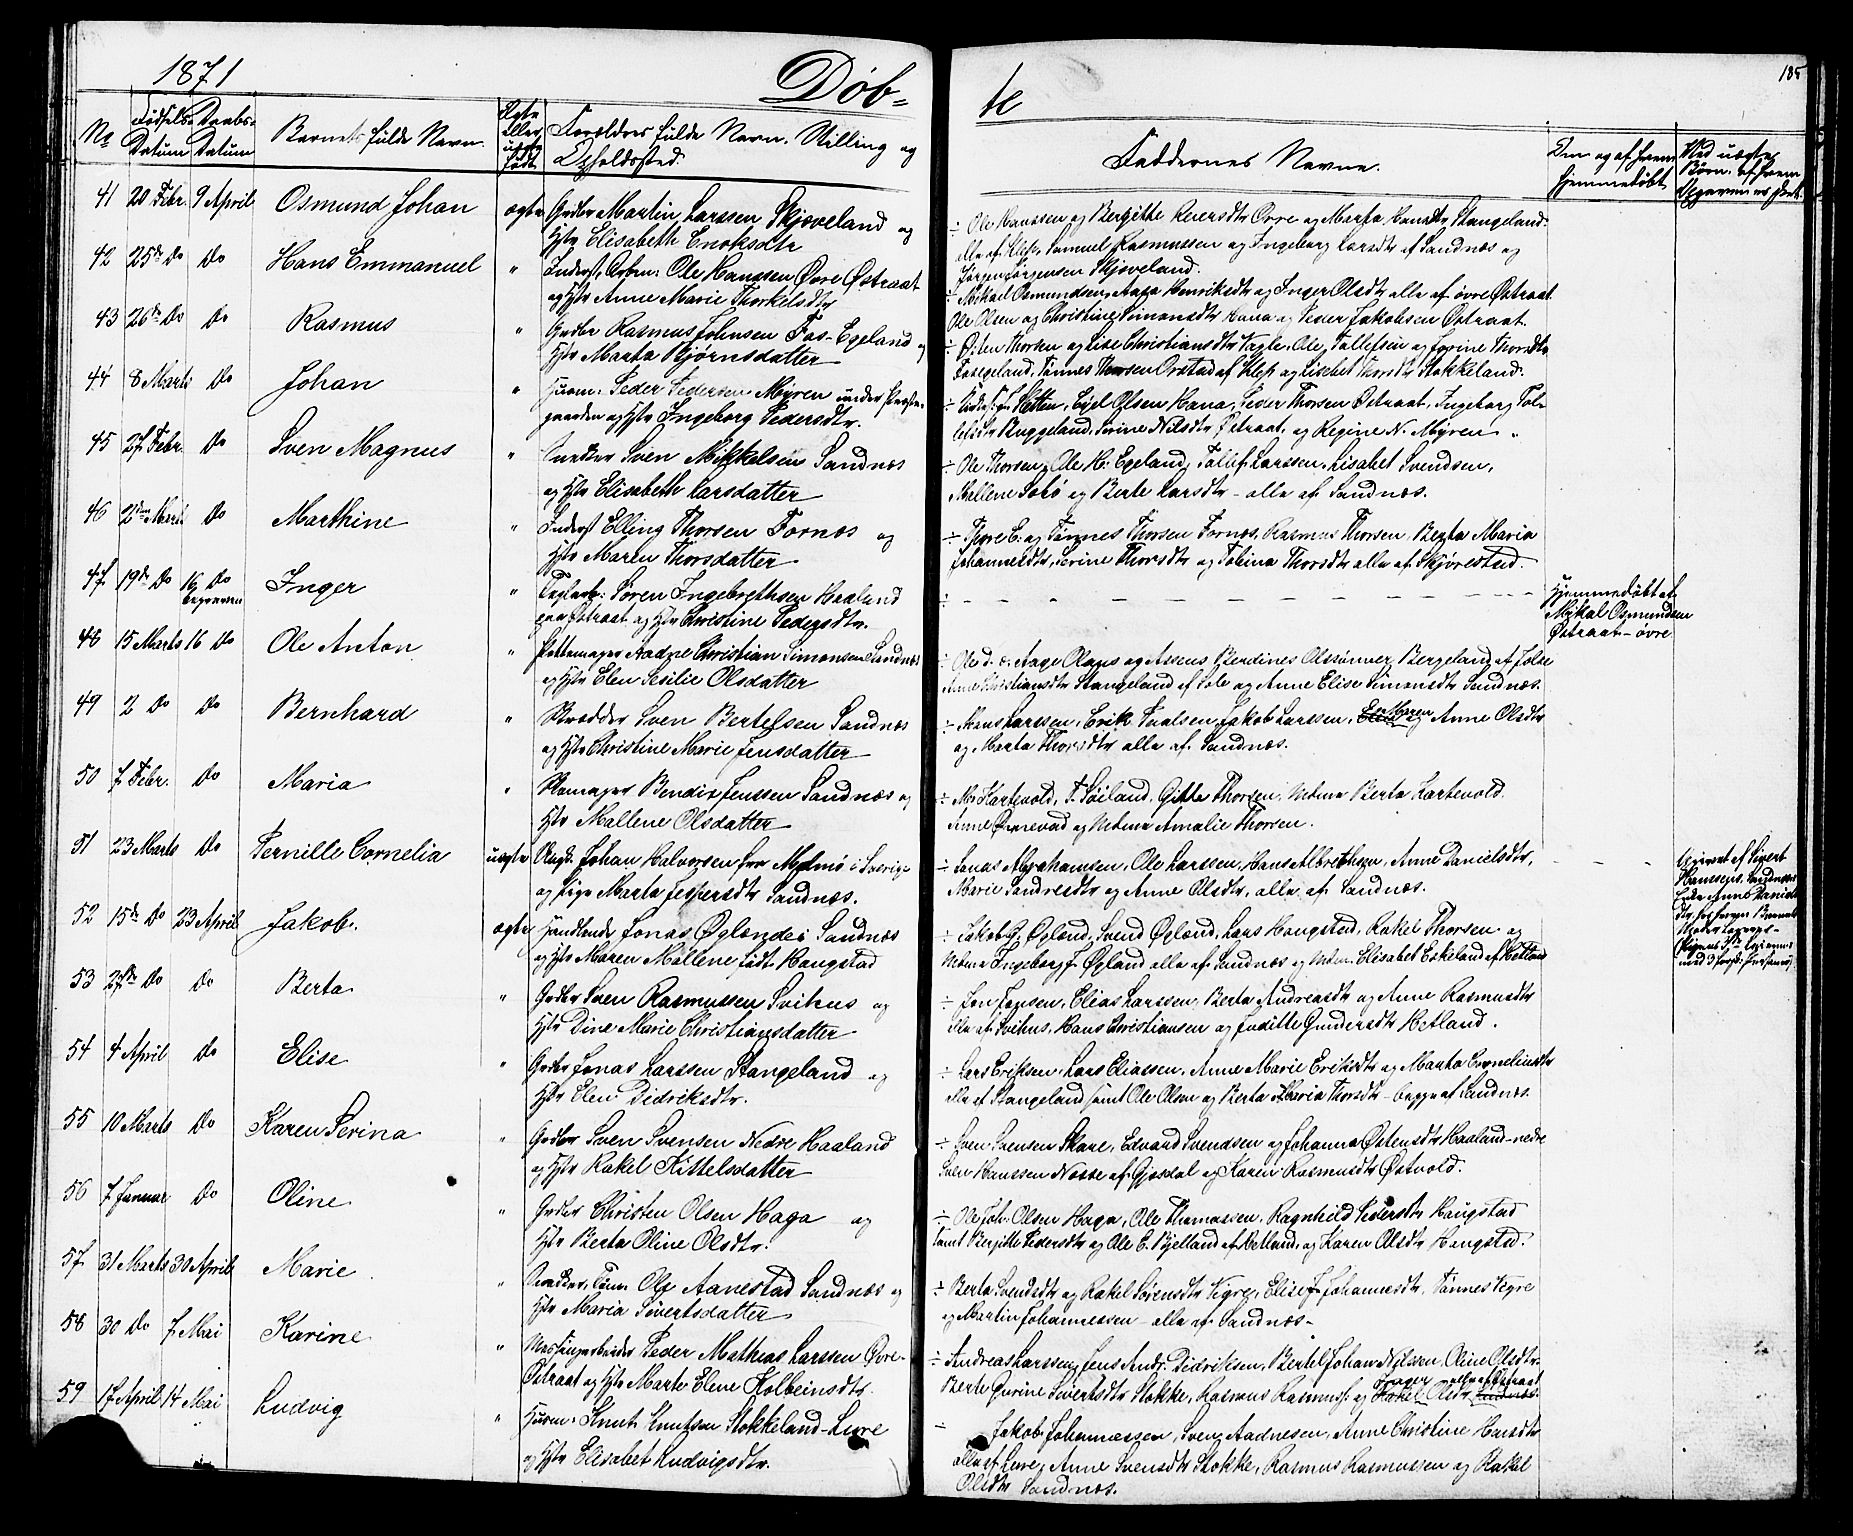 1871
Døb-
te
185
No
Fødsels-
Datum
Daabs-
Datum
Barnets fulde Navn.
Ægte
eller
uægte
født
Forældres fulde Navn, Stilling og
Opholdssted.
Faddernes Navne.
Om og af hvem
hjemmedøbt
Ved uægte
Børn, af hvem
Opgaven er skeet
41 20 Febr. 9 April Osmund Johan ægte Grdbr Martin Larssen Skjæveland og
Hstr Elisabeth Enoksdtr
÷ Ole Hanssen og Bergitte Reiersdtr Orre og Marta Hansdtr Stangeland
alle af Klep, Samuel Rasmussen og Ingeborg Larsdtr af Sandnæs og
Jørgen Jørgensen Skjæveland.
42 25de Do Do Hans Emmanuel " Inderst, Arbm: Ole Hanssen Øvre Østraat
og Hstr Anne Marie Thorkelsdtr
÷ Mikael Osmundsen, Aasa Henriksdtr og Inger Olsdtr alle af øvre Østraat
Ole Olsen og Christine Simonsdtr Hana og Peder Jakobsen Østraat.
43 26de Do Do Rasmus " Grdbr Rasmus Johnsen Fos-Egeland og
Hstr Marta Bjørnsdatter
÷ Østen Thorsen og Lise Christiansdtr Vagle, Ole Tollefsen og Serine Thorsdtr
Fosegeland, Tønnes Thorsen Orstad af Klep og Lisebet Thorsdtr Stokkeland.
44 8 Marts Do Johan " Husm: Peder Pedersen Myren under Præste-
gaarden og Hstr Ingeborg Pedersdtr.
Hetten, Egel Olsen Hana, Peder Thorsen Østraat, Ingeborg Tol-
lefsdtr Buggeland, Serine Nilsdtr Østraat og Regine N. Myren
45 27 Febr. Do Sven Magnus " Snedker Sven Mikkelsen Sandnæs
og Hstr Elisabeth Larsdatter
÷ Ole Thorsen, Ole H. Egeland, Tollef Larssen, Lisabet Svendsen,
Mallene Sobø og Berte Larsdtr - alle af Sandnæs.
46 2den Marts Do Marthine " Inderst Elling Thorsen Fornæs og
Hstr Maren Thorsdatter
÷ Thore E. og Tønnes Thorsen Fornæs, Rasmus Thorsen, Berta Maria
Johannesdtr, Serine Thorsdtr og Tobina Thorsdtr alle af Skjørestad.
47 19de Do 16 Do
begraven Inger " Teglarb: Søren Ingebrethsen Haaland
paa Østraat og Hstr Christine Pedersdtr.
÷ - - - - - - -
Hjemmedøbt af
Mikal Osmundsen
Østraat-øvre
48 15 Marts 16 Do Ole Anton " Pottemager Aadne Christian Simonsen Sandnæs
og Hstr Elen Sesilie Olsdatter
÷ Aage Olaus og Assens Berdines Olssønner Bergeland af Jolse
Anne Christiansdtr Stangeland af Sole og Anne Elise Simonsdtr Sandnæs.
49 2 Do Do Bernhard " Skrædder Sven Bertelsen Sandnæs
og Hstr Christine Marie Jensdatter
÷ Mons Larssen, Erik Paalsen, Jakob Larssen, Maren og Anne Olsdtr
og Marta Thorsdtr alle af Sandnæs.
50 7 Febr. Do Maria " Skomager Bendix Jenssen Sandnæs og
Hstr Mallene Olsdatter
÷ Mrs Kartevold, T. Søiland, Gitte Thorsen, Mdme Berta Kartevold
Anne Ørnevad og Mdme Amalie Thorsen.
51 23 Marts Do Pernille Cornelia uægte Ungk. Johan Halvorsen fra Malmø i Sverig-
og Pige Marta Jespersdtr Sandnæs.
÷ Jonas Abrahamsen, Ole Larssen, Hans Albrethsen, Anne Danielsdtr,
Marie Sandresdtr og Anne Olsdtr, alle af Sandnæs.
Opgivet af Sivert
Hanssens Sandnæs
Enke Anne Daniels-
dtr for hvem Barnets
Moder
52 15de Do 23 April Jakob. ægte Handlende Jonas Øglænde i Sandnæs
og Hstr Maren Mallene født Haugstad
÷ Jakob G. Øglænd, Svend Øglænd, Lars Haugstad, Rakel Thorsen og
Mdme Ingeborg J. Øgland alle af Sandnæs og Mdm: Elisabet Eskeland af Hetland
53 27de Do Do Berta " Grdbr Sven Rasmussen Svihus og
Hstr Dine Marie Christiansdatter
÷ Jon Jonsen, Elias Larssen, Berta Andreasdtr og Anne Rasmusdtr
alle af Svihus, Hans Christiansen og Juditte Gundersdtr Hetland.
54 4 April Do Elise " Grdbr Jonas Larssen Stangeland og
Hstr Elen Didriksdtr.
÷ Lars Eriksen, Lars Eliassen, Anne Marie Eriksdtr og Marta Corneliusdtr
alle af Stangeland samt Ole Olsen og Berta Maria Thorsdtr - begge af Sandnæs.
55 10 Marts Do Karen Serina " Grdbr Sven Svensen Nedre Haaland
og Hstr Rakel Kittelsdatter
÷ Sven Svensen Skare, Edvard Svendsen og Johanna Østensdtr Haaland-nedre
Sven Hanssen Nesse af Gjesdal og Karen Rasmusdtr Østvold.
56 7 Januar Do Oline " Grdbr Christen Olsen Haga og
Hstr Berta Oline Olsdtr.
÷ Ole Joh. Olsen Haga, Ole Thomassen, Ragnhild Pedersdtr Haugstad
samt Bergitte Pedersdtr og Ole E. Bjelland af Hetland, og Karen Olsdtr Haugstad.
57 31 Marts 30 April Marie " Snedker, Tøm: Ole Aanestad Sandnæs og
Hstr Maria Sivertsdatter
÷ Berta Svendsdtr og Rakel Sørensdtr Vigre, Elise J. Johannesdtr, Tønnes Vigre
og Martin Johannessen - alle af Sandnæs-
58 30 Do 7 Mai Karine " Maskinarbeider Peder Mathias Larssen Øvre-
Østraat og Hstr Marte Elene Kolbeinsdtr.
÷ Andreas Larssen, Jens Andr. Didriksen, Bertel Johan Nilssen, Oline Olsdtr
Berte Gurine Sivertsdtr Stokke, Rasmus Rasmuss: og Rakel Olsdtr Sandnæs.
59 17 April 14 Mai Ludvig " Husm: Knut Knutsen Stokkeland-Lure
og Hstr Elisabet Ludvigsdtr.
÷ Jakob Johannessen, Sven Aadnesen, Anne Christine Hansdtr
alle af Lure, Anne Svensdtr Stokke, Rasmus Rasmussen og Rakel
Olsdtr Sandnæs.